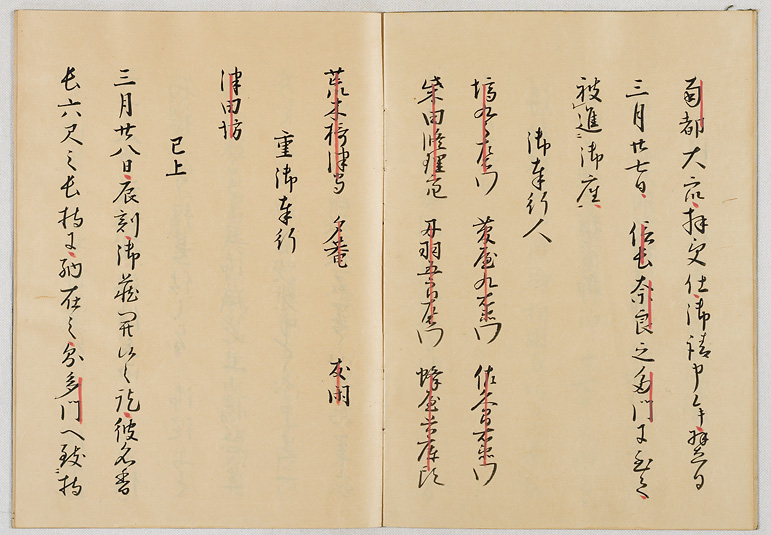 南都大衆拝受仕御請申
三月廿七日信長奈良之多門に至て
被進御座
御奉行人
塙九郎左衛門 菅屋九右衛門 佐久間右衛門
柴田修理亮 丹羽五郎左衛門 蜂屋兵庫頭
荒木摂津守 夕菴 友閑
重御奉行
津田坊
已上
三月廿八日辰刻御蔵開候訖彼名香
長六尺之長持に納在之則多門へ致持